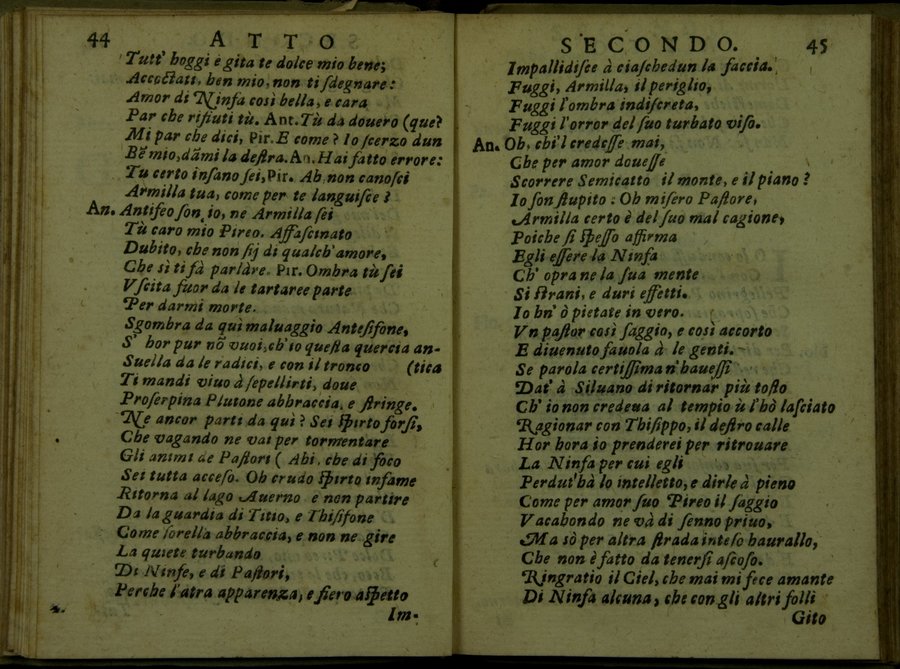 44 ATTO
Tutt' hoggi è gita te dolce mio bene;
Accostati, ben mio, non ti sdegnare:
Amor di Ninfa così bella, e cara
Par che rifiuti tù. Ant. Tù da douero (que?
Mi par che dici, Pir. E come? Io scerzo dun
Bẽ mio, dãmi la destra. An. Hai fatto errore:
Tu certo insano sei, Pir. Ah non canosci
Armilla tua, come per te languisce?
An. Antifeo son, io, ne Armilla sei
Tù caro mio Pireo. Affascinato
Dubito, che non sij di qualch' amore,
Che sì ti fà parlàre. Pir. Ombra tù sei
Vscita fuor da le tartaree parte
Per darmi morte.
Sgombra da qui maluaggio Antesifone,
S' hor pur nõ vuoi, ch'io questa quercia an-
Suella da le radici, e con il tronco (tica
Ti mandi viuo à sepellirti, doue
Proserpina Plutone abbraccia, e stringe.
Ne ancor parti da quì? Sei spirto forsi,
Che vagando ne vai per tormentare
Gli animi de Pastori (Ahi, che di foco
Sei tutta acceso. Oh crudo spirto infame
Ritorna al lago Auerno e non partire
Da la guardia di Titio, e Thisifone
Come sorella abbraccia, e non ne gire
La quiete turbando
Di Ninfe, e di Pastori,
Perche l'atra apparenza, e fiero aspetto
Im-
SECONDO. 45
Impallidisce à ciaschedun la faccia.
Fuggi, Armilla, il periglio,
Fuggi l'ombra indiscreta,
Fuggi l'orror del suo turbato viso.
An. Oh, chi'l credesse mai,
Che per amor douesse
Scorrere Semicatto il monte, e il piano?
Io son stupito: Oh misero Pastore,
Armilla certo è del suo mal cagione,
Poiche si spesso affirma
Egli essere la Ninfa
Ch' opra ne la sua mente
Si strani, e duri effetti.
Io hn' ò pietate in vero.
Vn pastor così saggio, e così accorto
E diuenuto fauola à le genti.
Se parola certissima n' hauessi
Dat' à Siluano di ritornar più tosto
Ch' io non credeua al tempio ù l'hò lasciato
Ragionar con Thisippo, il destro calle
Hor hora io prenderei per ritrouare
La Ninfa per cui egli
Perdut'hà lo intelletto, e dirle à pieno
Come per amor suo Pireo il saggio
Vacabondo ne và di senno priuo,
Ma sò per altra strada inteso haurallo,
Che non è fatto da tenersi ascoso.
Ringratio il Ciel, che mai mi fece amante
Di Ninfa alcuna, che con gli altri folli
Gito